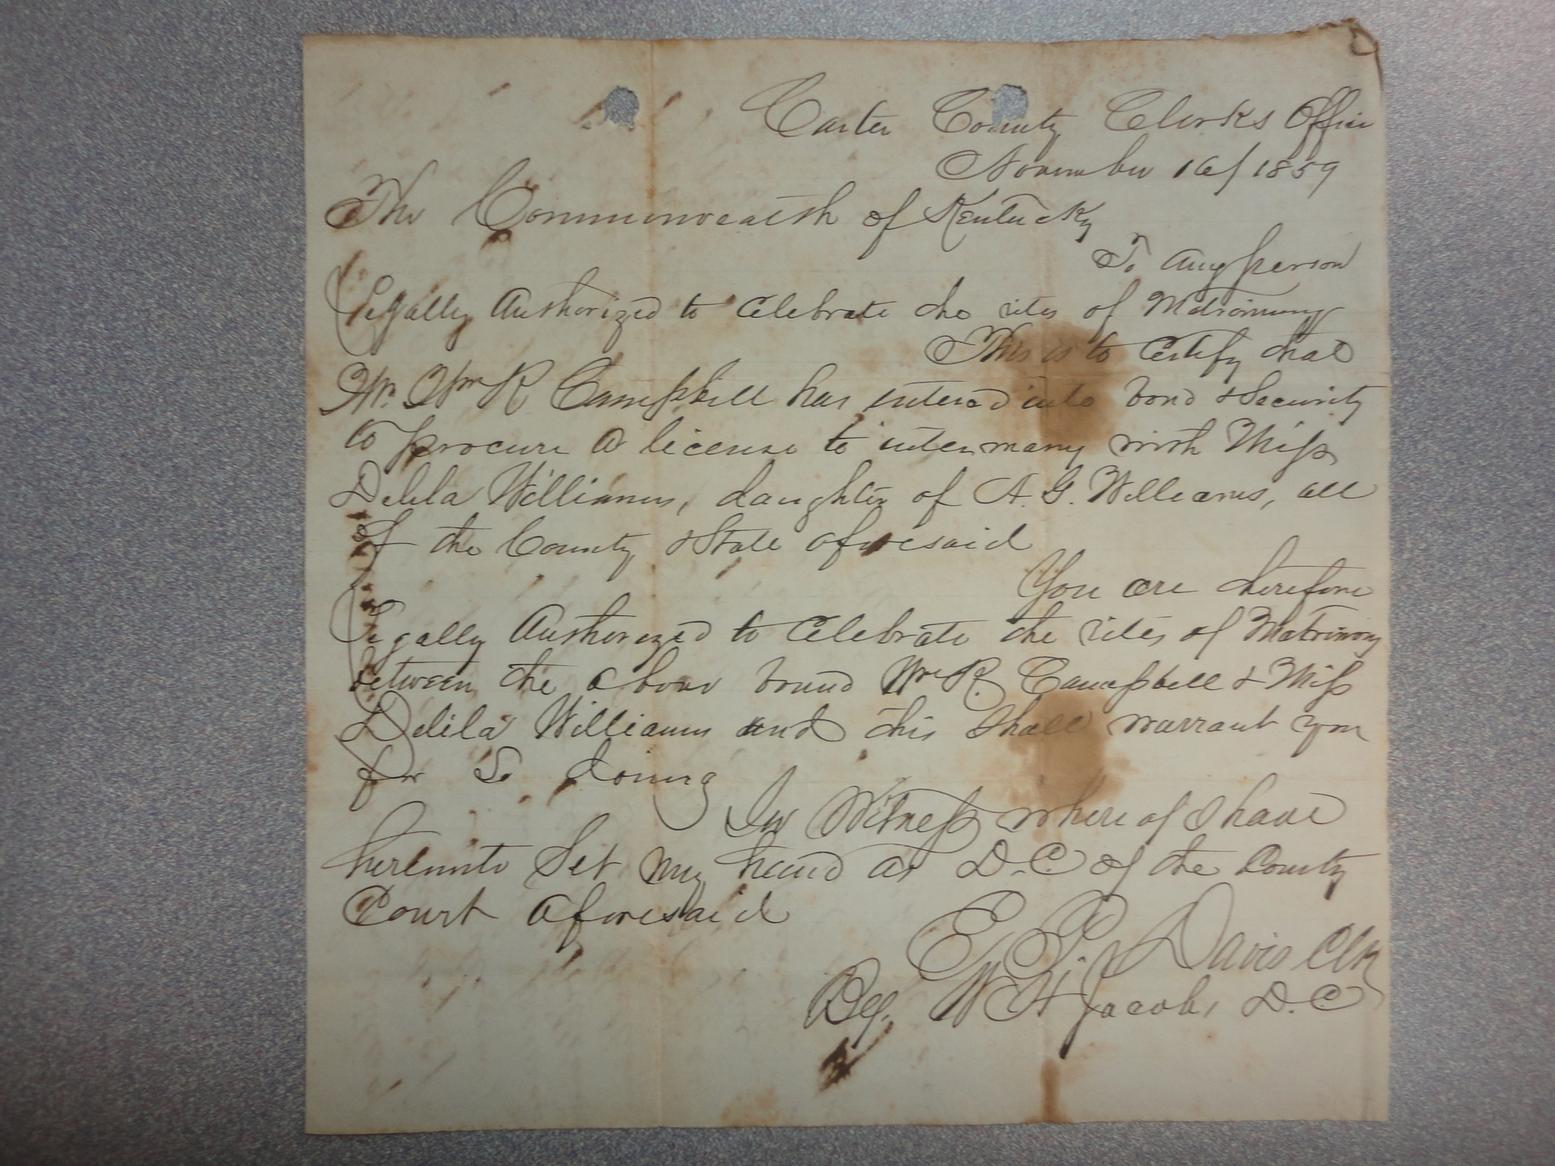 Carter County Clerks Office
November 16/1859
The Commonwealth of Kentucky
To any person
Legally Authorized to Celebrate the rites of Matrimony
This is to Certify that
Mr. Wm R Campbell has entered into bond & Security
to procure a license to intermarry with Miss
Delila Williams, daughter of A. G. Williams, all
of the County & State aforesaid
You are therefore
Legally Authorized to Celebrate the rites of Matrimony
between the above bound Wm R. Campbell & Miss
Delila Williams and this Shall warrant you
for So doing
In Witness where of I have
hereunto Set my hand as D.C of the County
Court aforesaid
Davis Clk
By. W H Jacobs D.C